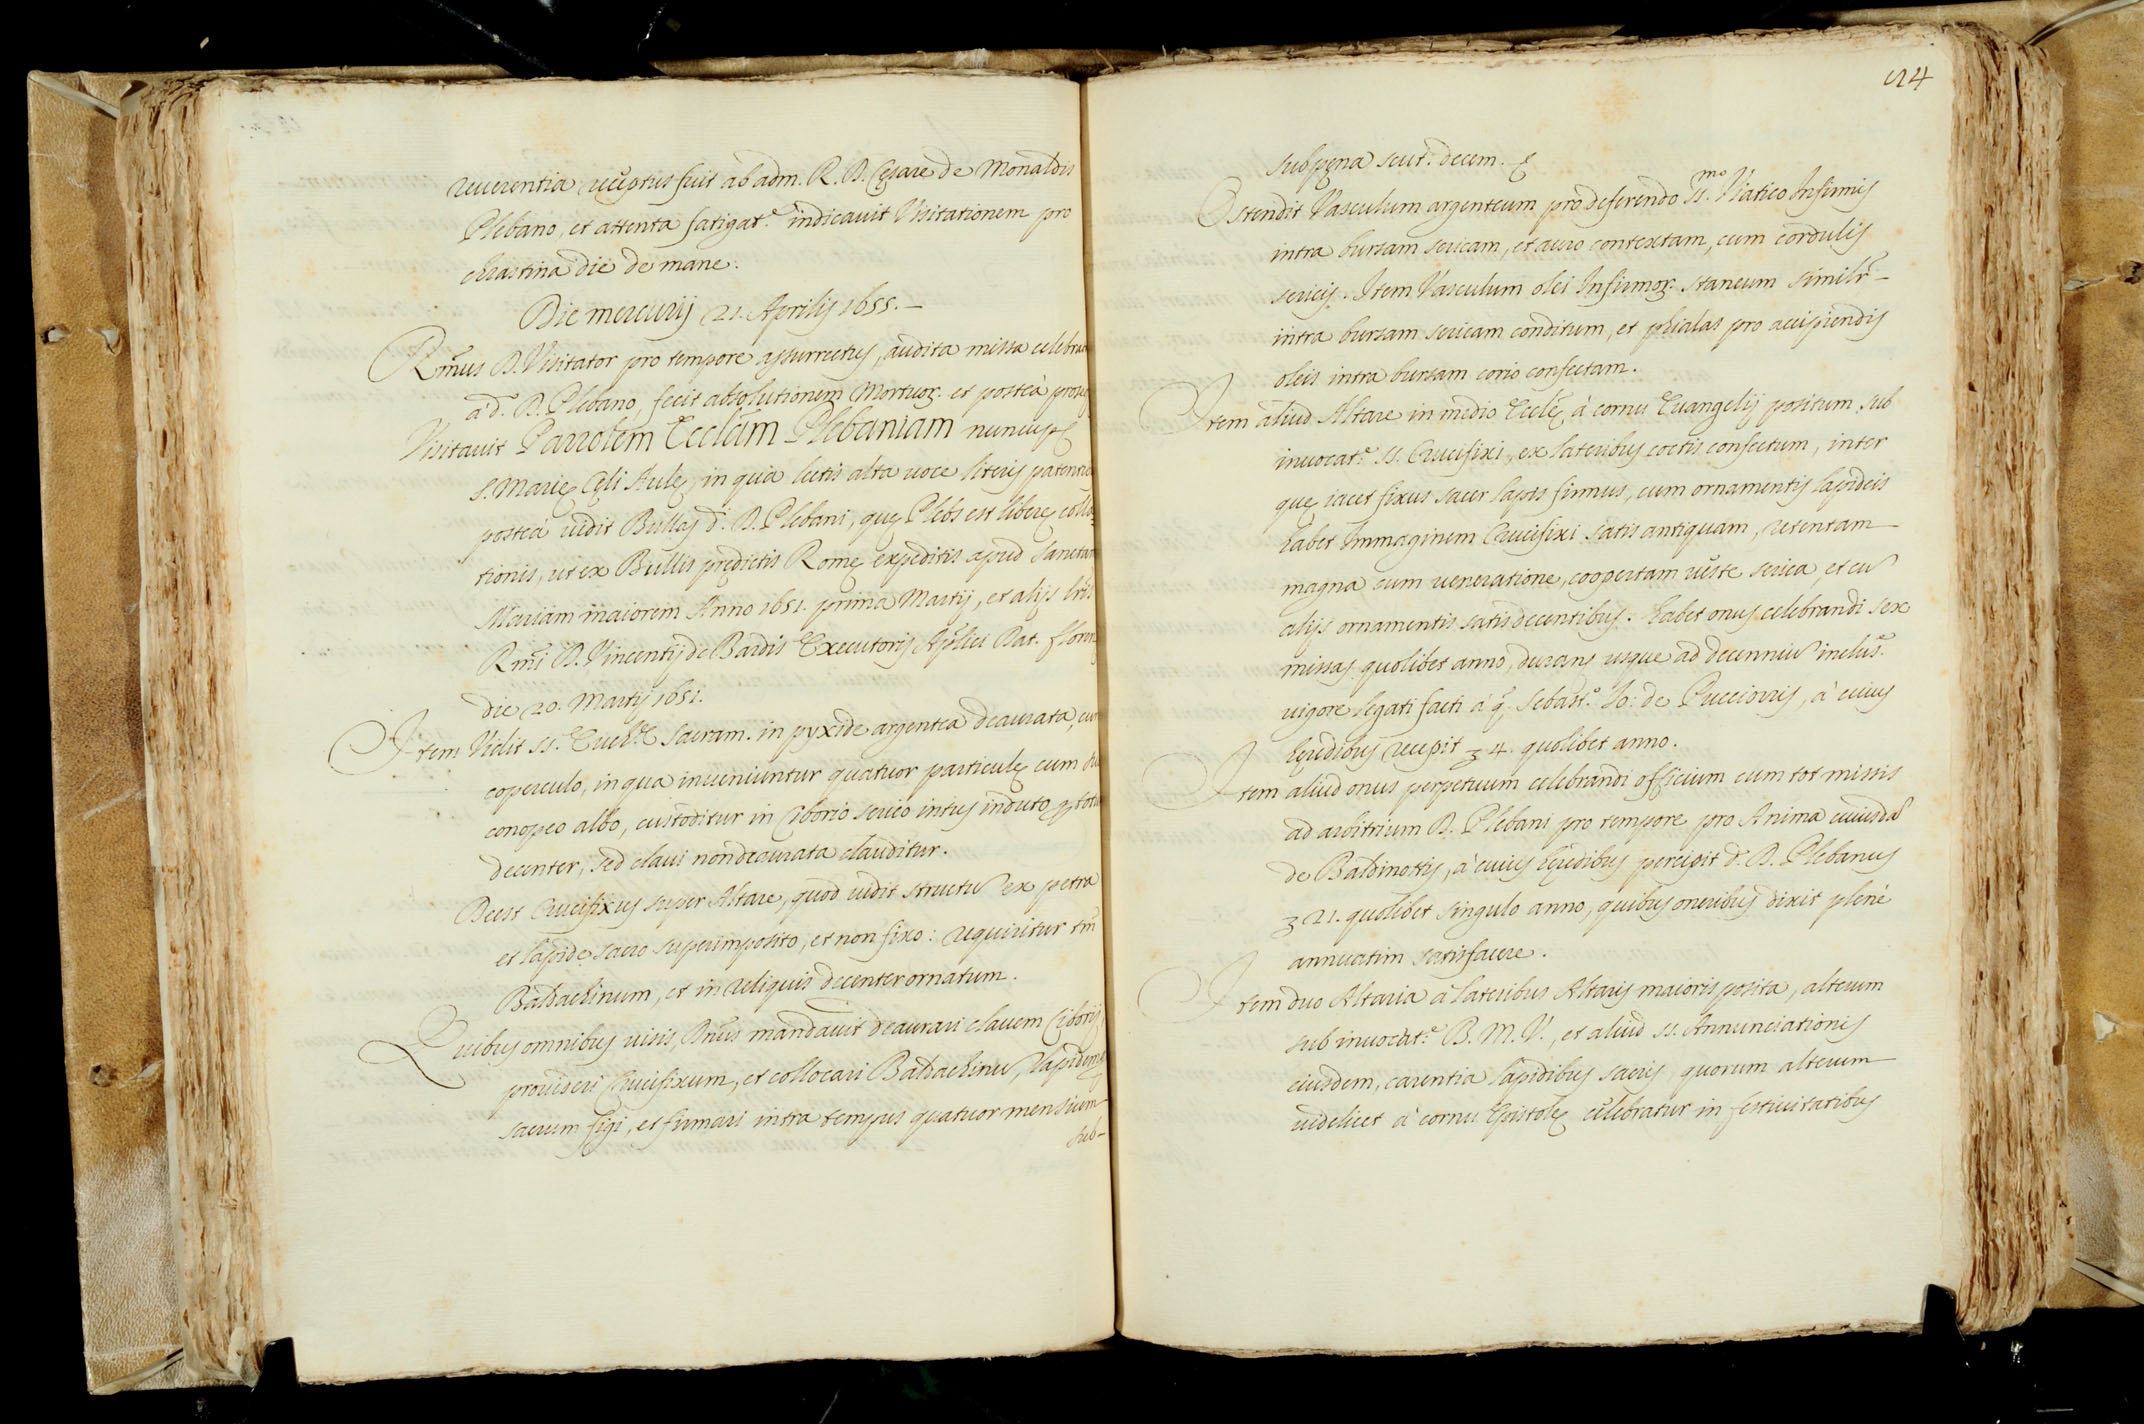 reuerentia receptus fuit ab adm. R. D. Cęsare de Monaldis
Plebano, et attenta fatigat.e indicauit Visitationem pro
chrastina die de mane.
Die mercurij 21. Aprilis 1655.
Rm̃us D. Visitator pro tempore assurrectus, audita missa celebra
a d.o D. Plebano, fecit absolutionem Mortuor. et posteà
Visitauit Parrolem Ecclãm Plebaniam nuncup.
S. Marię Cęli Aulę, in qua lectis alta uoce literis patent
postea uidit Bullas d. D. Plebani, quę Plebs est liberę colla
tionis, ut ex Bullis prędictis Romę expeditis apud Sanctam
Mariam maiorem Anno 1651. prima Martij, et alijs lr̃is
Rm̃i D. Vincentij de Bardis Executoris Ap̃lici Dat. floren
die 20. Martij 1651.
Item Vidit SS. Euch.e Sacram. in pyxide argentea deaurata, cum
coperculo, in qua inueniuntur quatuor particulę cum su
conopeo albo, custoditur in Ciborio serico intus induto,
decenter, sed claui non deaurata clauditur.
Deest Crucifixus super Altare, quod uidit structũ ex petra
et lapide sacro superimposito, et non fixo: requiritur tm̃
Baldachinum, et in reliquis decenter ornatum.
Quibus omnibus uisis, Dnũs mandauit deaurari clauem Ciborij
prouideri Crucifixum, et collocari Baldachinũ, lapidem
sacrum figi, et firmari intra tempus quatuor mensium
sub-
524
sub pęna scut. decem.
Ostendit Vasculum argenteum pro deferendo SS.mo Viatico Infirmis
intra bursam sericam, et auro contextam, cum cordulis
sericis. Item Vasculum olei Infirmor. staneum similr̃
intra bursam sericam conditum, et phialas pro accipiendis
oleis intra bursam corio confectam.
Item aliud Altare in medio Ecclę à cornu Euangelij positum sub
inuocat.e SS. Crucifixi, ex lateribus coctis confectum, inter
quę iacet fixus sacer lapis firmus, cum ornamentis lapideis
habet Immaginem Crucifixi satis antiquam, retentam
magna cum ueneratione, coopertam ueste serica, et cũ
alijs ornamentis satis decentibus. habet onus celebrandi sex
missas quolibet anno, durans usque ad decenniũ inclus.
uigore legati facti à q. Sebast.o Jo: de Pucciouis, à cuius
hęredibus recepit ʒ 4. quolibet anno.
Item aliud onus perpetuum celebrandi officium cum tot missis
ad arbitrium D. Plebani pro tempore pro Anima cuiusdã
de Baldinottis, à cuius hęredibus percipit d. D. Plebanus
ʒ 21. quolibet singulo anno, quibus oneribus dixit plenè
annuatim satisfacere.
Item duo Altaria à lateribus Altaris maioris posita, alterum
sub inuocat.e B. M. V., et aliud SS. Annunciationis
eiusdem, carentia lapidibus sacris, quorum alterum
uidelicet à cornu Epistolę celebratur in festiuitatibus